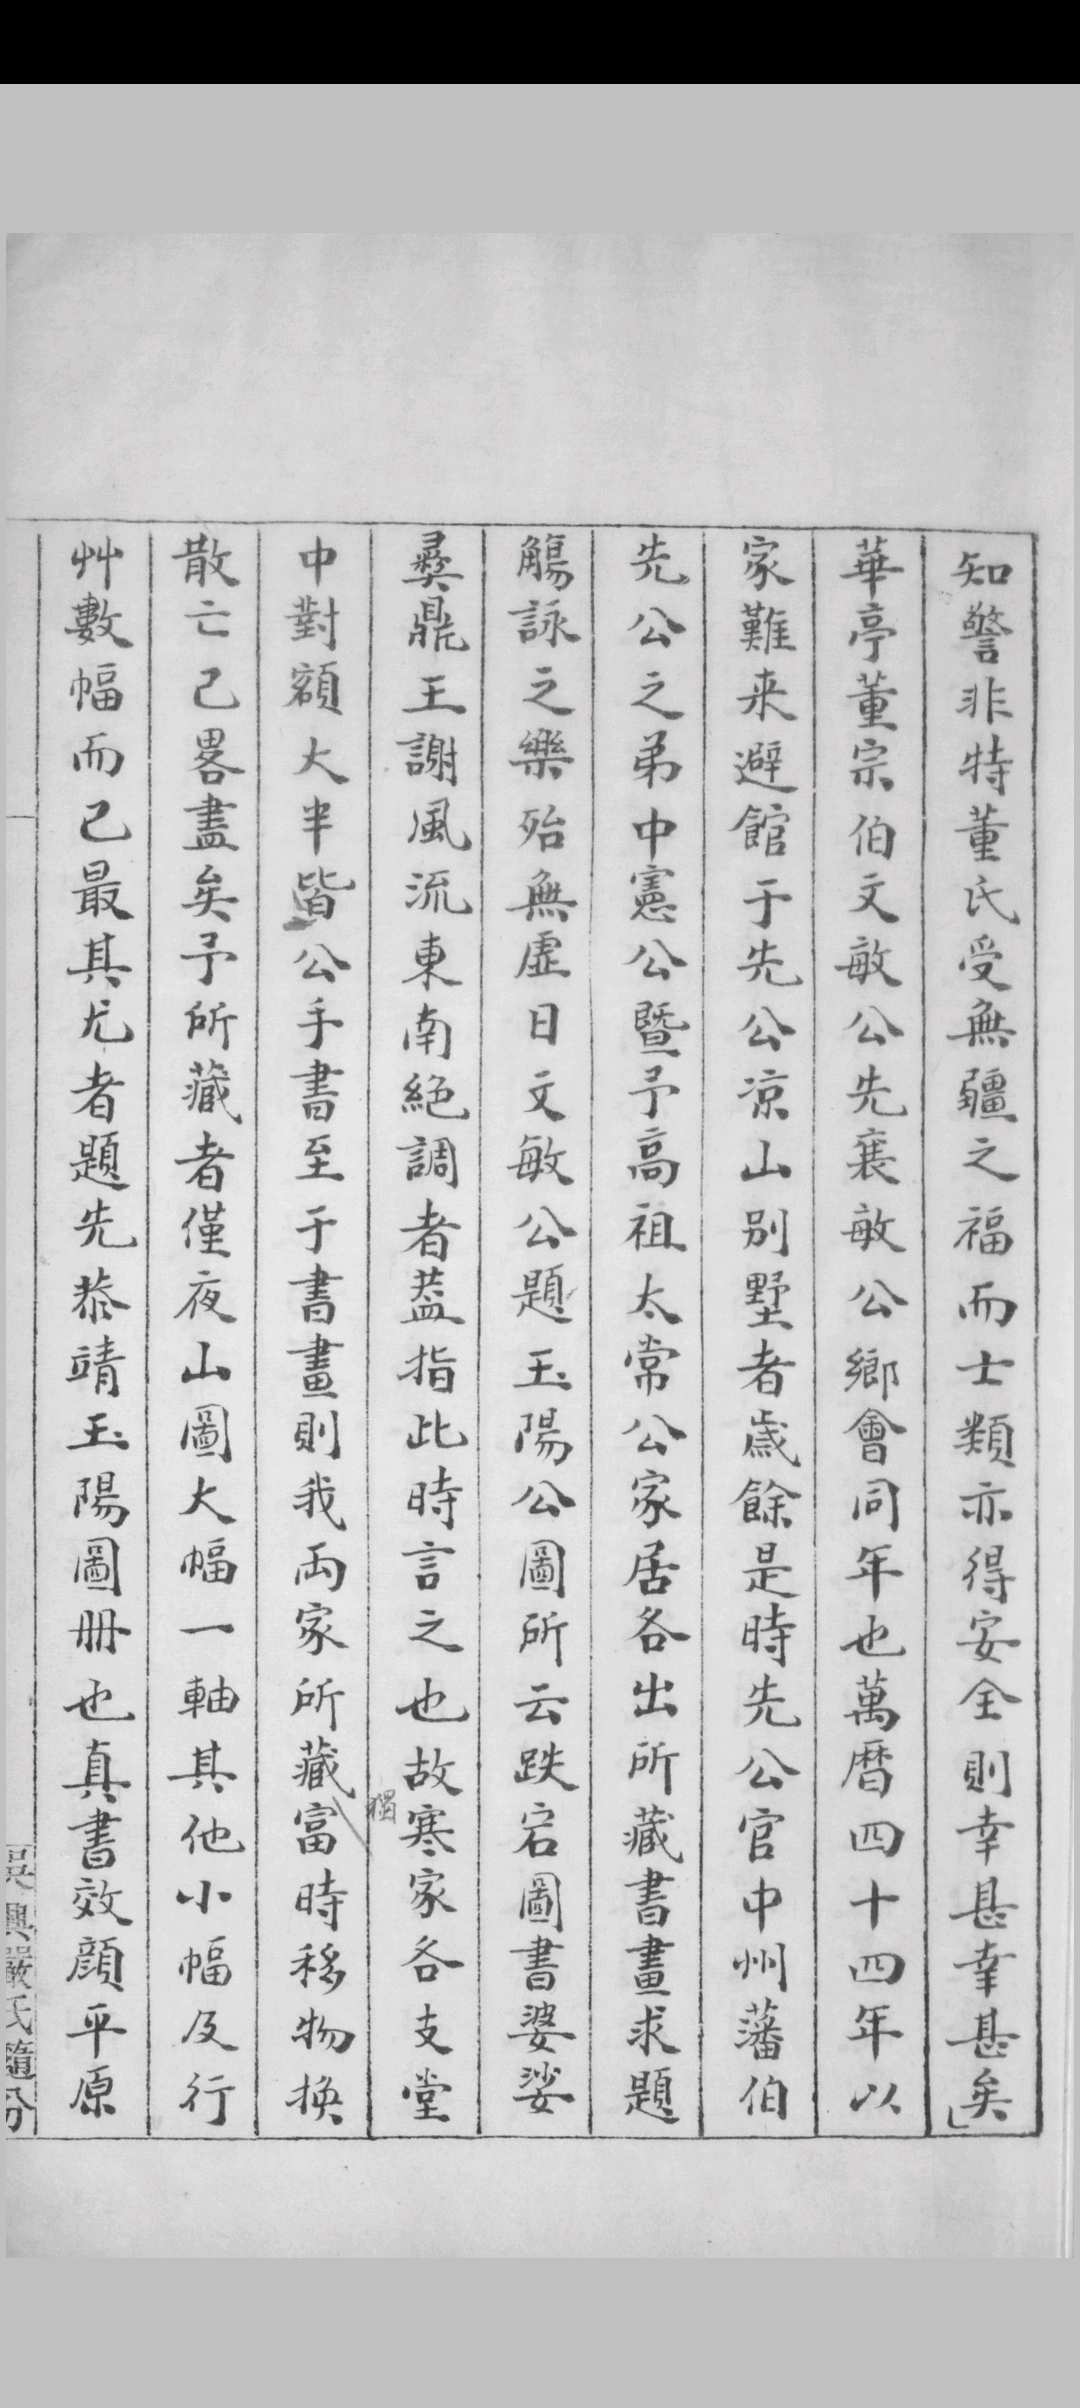 知警非特董氏受無疆之福而士類亦得安全則幸甚幸甚矣
華亭董宗伯文敏公先襄敏公鄉會同年也萬曆四十四年以
家難来避館于先公凉山别墅者歲餘是時先公官中州藩伯
先公之弟中憲公暨予高祖太常公家居各出所藏書畫求題
觴詠之樂殆無虛日文敏公題玉陽公圖所云跌宕圖書婆娑
彛鼎王謝風流東南絕調者葢指此時言之也故寒家各支堂
中對額大半皆公手書至于書畫則我两家所藏獨富時移物换
散亡已畧盡矣予所藏者僅夜山圖大幅一軸其他小幅及行
艸數幅而已最其尤者題先恭靖玉陽圖冊也真書效顔平原
吳興嚴氏隨分